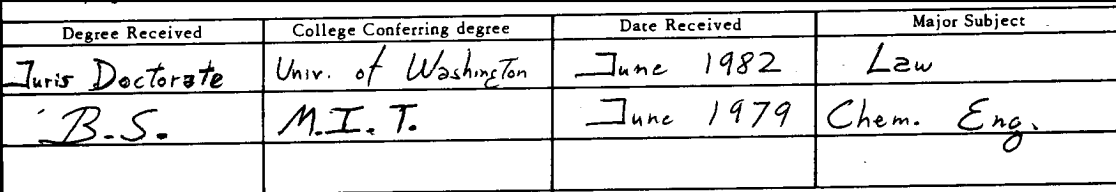 Degree Received College Conferring degree Date Received Major Subject
Juris Doctorate Univ. of Washington June 1982 Law
B.S. M.I.T. June 1979 Chem. Eng.